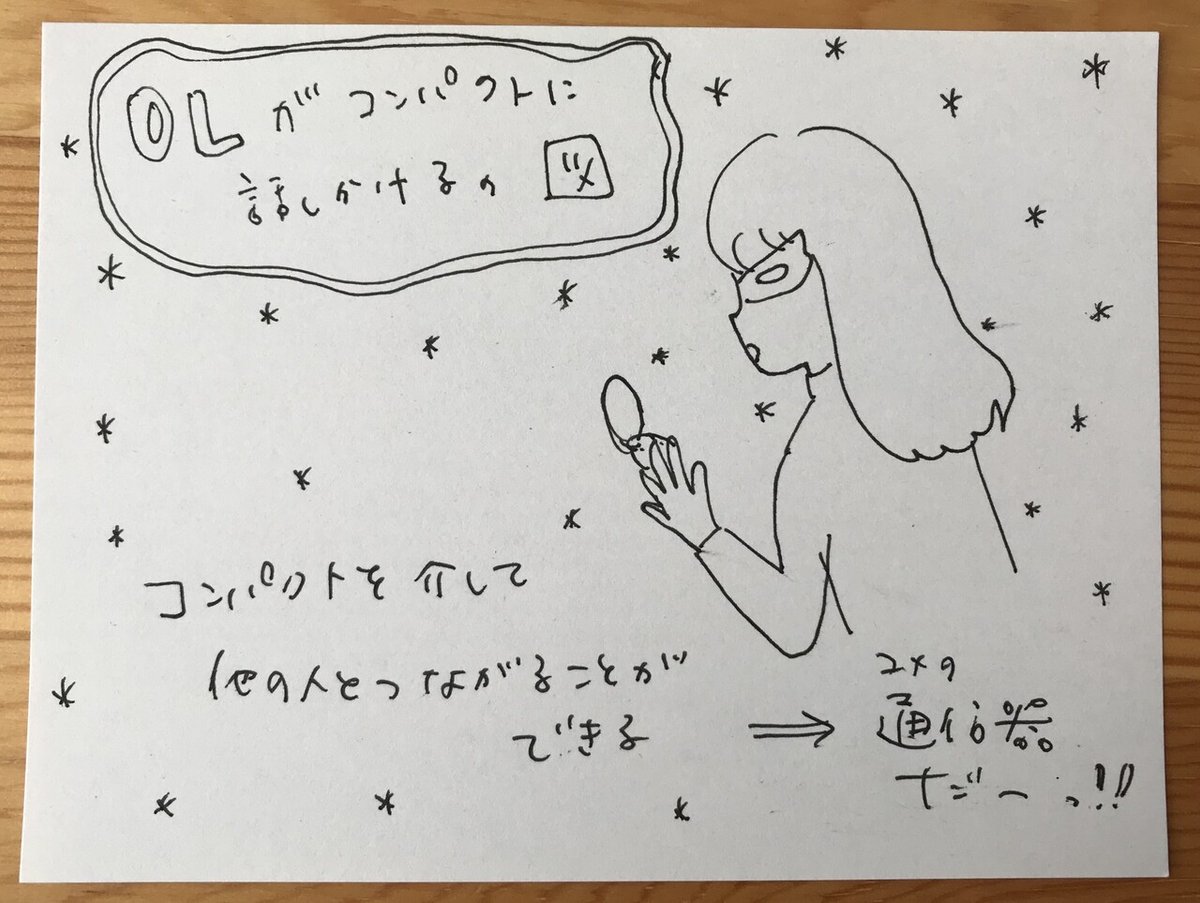 OLがコンパクトに
話しかけるの図
コンパクトを介して
他の人とつながることが
できる ⇒
ユメの
通信器
だーっ!!